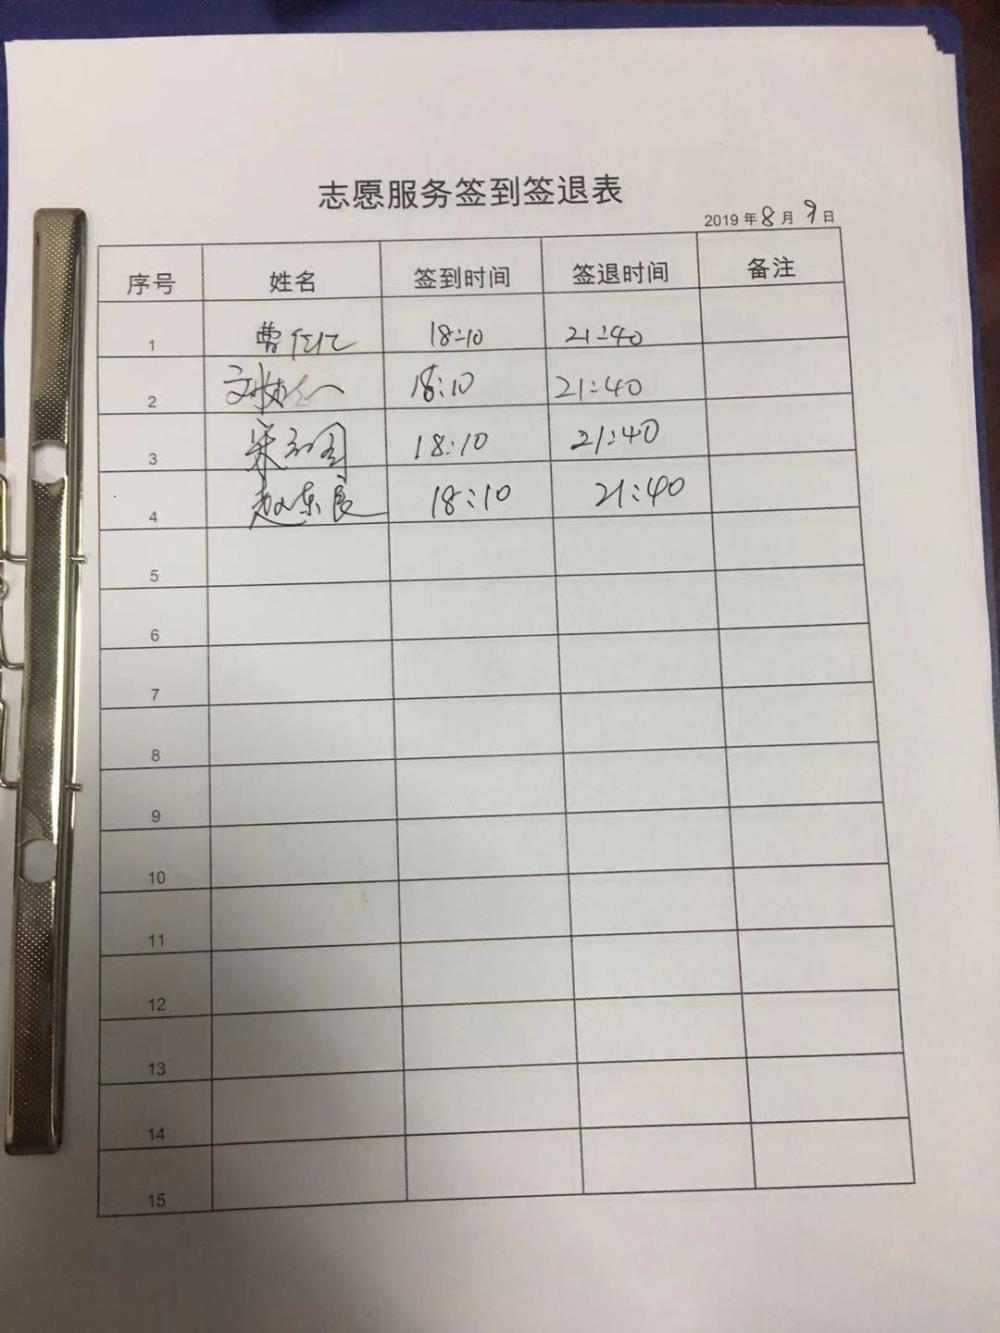 志愿服务签到签退表
2019 年 8 月 9 日
序号 姓名 签到时间 签退时间 备注
1 曹 18:10 21:40
2 18:10 21:40
3 宋 18:10 21:40
4 赵东良 18:10 21:40
5
6
7
8
9
10
11
12
13
14
15